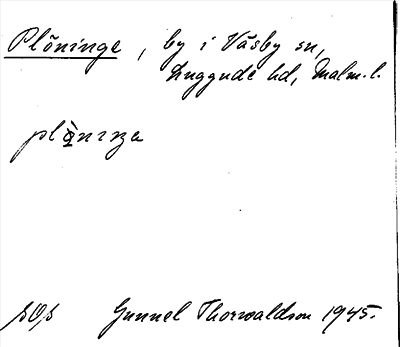 Plöninge, by i Väsby sn,
Luggude hd, Malm. l.
plọ̀nıŋa
SOS Gunnel Thorwaldson 1945.